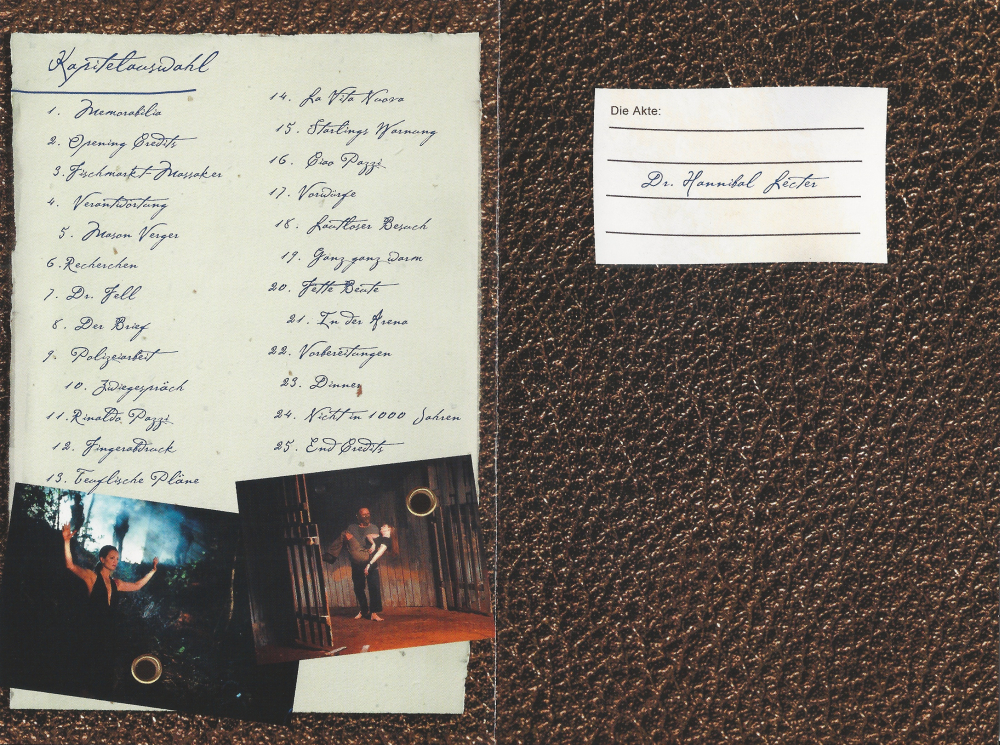 Kapitelauswahl
1. Memorabilia
2. Opening Credits
3. Fischmarkt Massaker
4. Verantwortung
5. Mason Verger
6. Recherchen
7. Dr. Fell
8. Der Brief
9. Polizeiarbeit
10. Zwiegespräch
11. Rinaldo Pazzi
12. Fingerabdruck
13. Teuflische Pläne
14. La Vita Nuova
15. Starlings Warnung
16. Ciao Pazzi
17. Vorwürfe
18. Lautloser Besuch
19. Ganz ganz warm
20. Fette Beute
21. In der Arena
22. Vorbereitungen
23. Dinner
24. Nicht in 1000 Jahren
25. End Credits
Die Akte:
Dr. Hannibal Lecter